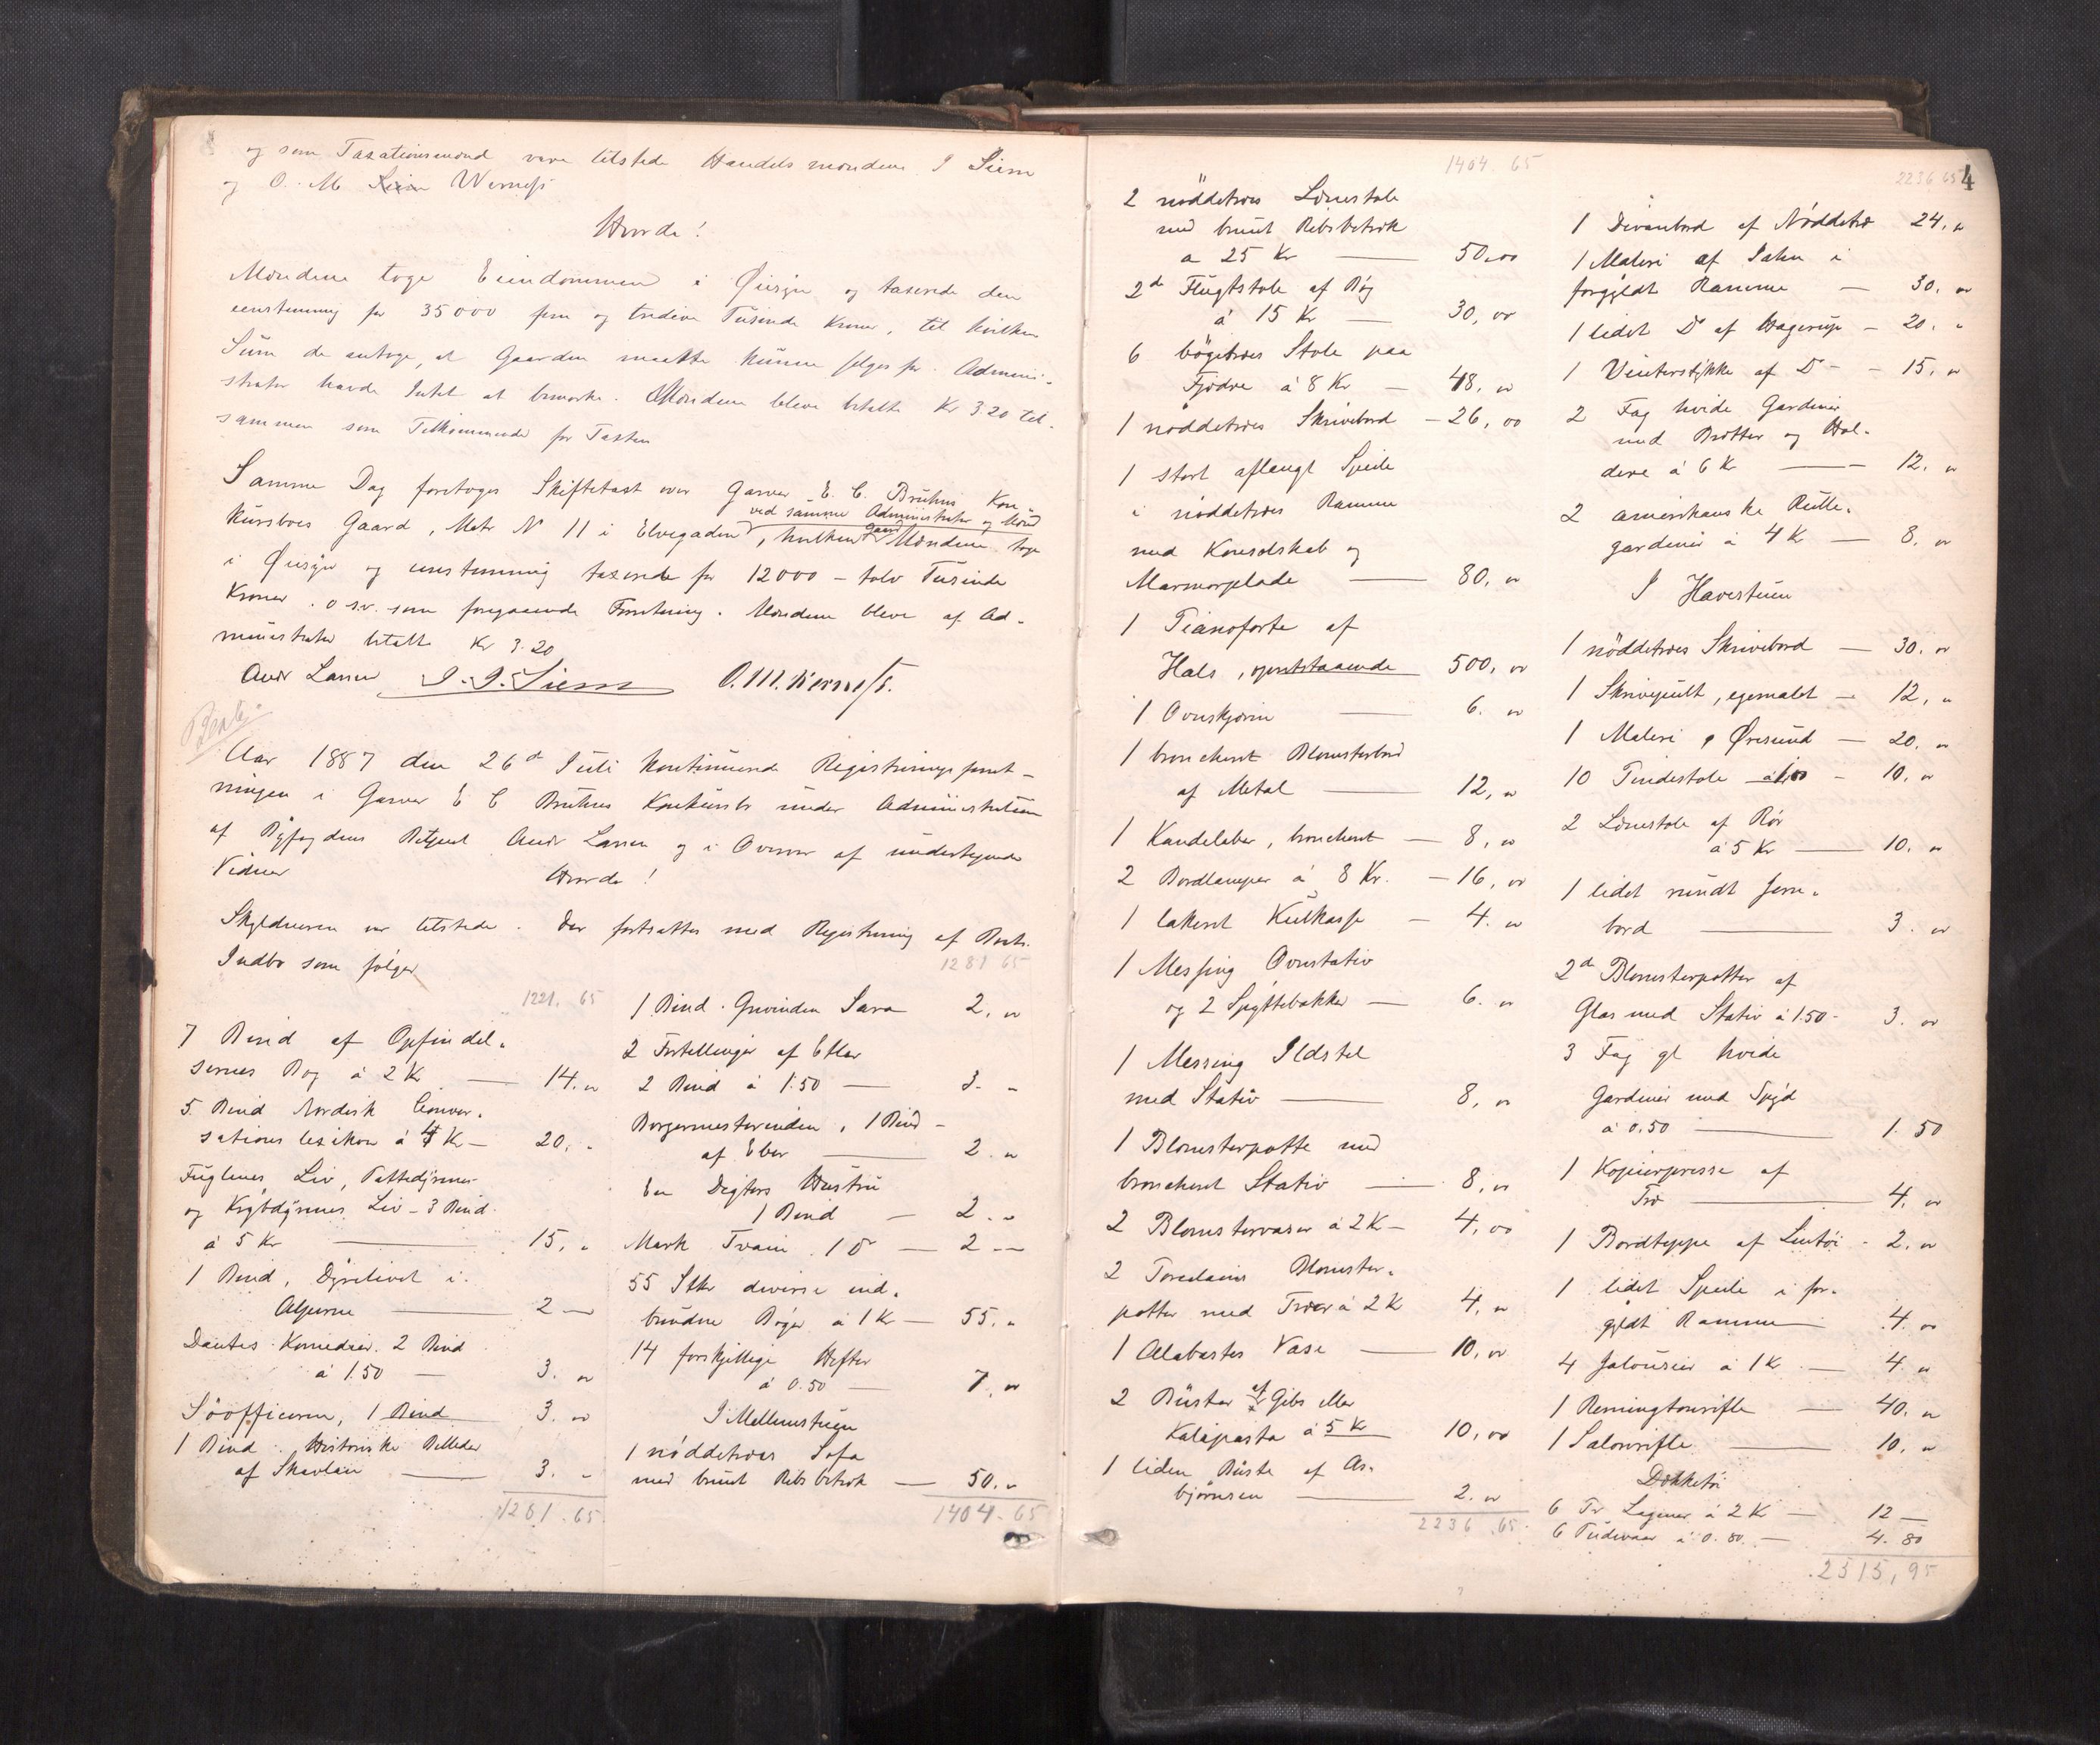 og som Taxationsmænd vare tilstede Handelsmændene I Siem
og O. M. Werness
Hvorda!
Mændene toge Eiendommen i Øiesyn og taxerede den
eenstemmig for 35000 fem og tredive Tusinde Kroner, til hvilken
Sum de antoge, at Gaarden maatte kunne sælges for. Admini-
strator havde Intet at bemærke. Mændene bleve betalte Kr 3.20 til-
sammen som Tilkommende for Taxten
Samme Dag foretoges Skiftetaxt over Garver E. C. Bruhns Kon-
ved samme Administrator og Mænd
kursboes Gaard, Matr N 11 i Elvegaden, hvilken Gaard Mændene toge
i Øiesyn og eenstemmig taxerede for 12000 - tolv Tusinde
Kroner. o.s.v. som foregaaende Forretning. Mændene bleve af Ad-
ministrator betalte Kr 3.20
Andr Larsen J. J. Siem O. M. Werness.
Aar 1887 den 26de Juli kontinuerede Registreringsforret-
ningen i Garver E C Bruhns Konkursbo under Administration
af Byfogdens Betjent Andr Larsen og i Overvær af undertegnede
Vidner
Hvorda!
Skyldneren var tilstede. Der fortsattes med Registrering af Boets
Indbo som følger
1221. 65
7 Bind af Opfindel-
sernes Bog à 2 Kr — 14. "
5 Bind Nordisk Conver-
sations lexikon à 4 Kr — 20. "
Fuglenes Liv, Pattedyrenes
og Krybdyrenes Liv - 3 Bind
à 5 Kr — 15. "
1 Bind, Dyrelivet i
Alperne — 2 —
Dantes Komedier. 2 Bind
à 1.50 — 3. "
Søofficeren, 1 Bind 3. "
1 Bind Historiske Billeder
af Skavlan — 3. "
1281.65
1281 65
1 Bind. Grevinden Sara 2. "
2 Fortellinger af Etlar
2 Bind à 1.50 — 3. "
Borgermesterinden, 1 Bind
af Ebers — 2. "
En Digters Hustru
1 Bind — 2. "
Mark Tvain. 1 Do — 2 —
55 Stkr diverse ind-
bundne Bøger à 1 Kr — 55. "
14 forskjellige Hefter
à 0.50 — 7. "
I Mellemstuen
1 nøddetræes Sofa
med brunt Ribs betræk — 50. "
1404.65
1404.65
2 nøddetræes Lænestole
med brunt Ribsbetræk
a 25 Kr — 50.00
2de Flugtstole af Bøg
à 15 Kr — 30, 00
6 bøgetræes Stole paa
Fjædre à 8 Kr — 48, "
1 nøddetræes Skrivebord — 26, 00
1 stort aflangt Speile
i nøddetræes Ramme
med Konsolskab og
Marmorplade — 80, "
1 Pianoforte af
Hals, opretstaaende 500, "
1 Ovnskjærm — 6. "
1 broncheret Blomsterbord
af Metal — 12, "
1 Kandelaber, broncheret — 8, "
2 Bordlamper à 8 Kr. — 16, "
1 lakeret Kulkasse — 4. "
1 Messing Ovnstativ
og 2 Spyttebakker — 6. "
1 Messing Ildstel
med Stativ — 8, "
1 Blomsterpotte med
broncheret Stativ — 8, "
2 Blomstervaser à 2 K — 4, 00
2 Porcelains Blomster-
potter med Træer à 2 K 4, "
1 Alabastes Vase — 10, "
2 Büster af Gibs eller
Kalapasta à 5 Kr 10, "
1 liden Büste af As-
bjørnsen — 2. "
2236.65
2236 65
4
1 Divanbord af Nøddetræ 24. "
1 Maleri af Dahn i
forgyldt Ramme — 30. "
1 lidet Do af Hagerup — 20. "
1 Vinterstykke af Do — 15. "
2 Fag hvide Gardiner
med Brætter og Hol-
dere à 6 Kr — 12. "
2 amerikanske Rulle-
gardiner à 4 K — 8. "
I Havestuen
1 nøddetræes Skrivebord — 30. "
1 Skrivepult, egemalet — 12, "
1 Maleri, Øresund — 20. "
10 Pindestole à 1.00 — 10. "
2 Lænestole af Rør
à 5 Kr — 10. "
1 lidet rundt Jern-
bord — 3. "
2de Blomsterpotter af
Glas med Stativ à 1.50 — 3. "
3 Fag gl hvide
Gardiner med Spyd
à 0.50 — 1. 50
1 Kopierpresse af
Træ — 4. "
1 Bordteppe af Lintøi — 2. "
1 lidet Speile i for-
gyldt Ramme — 4. "
4 Jalousier à 1 Kr — 4. "
1 Remingtonrifle — 40. "
1 Salonrifle — 10. "
Dækketøi
6 Pr Lagener à 2 Kr — 12 —
6 Pudevaar à 0.80 — 4. 80
2515,95